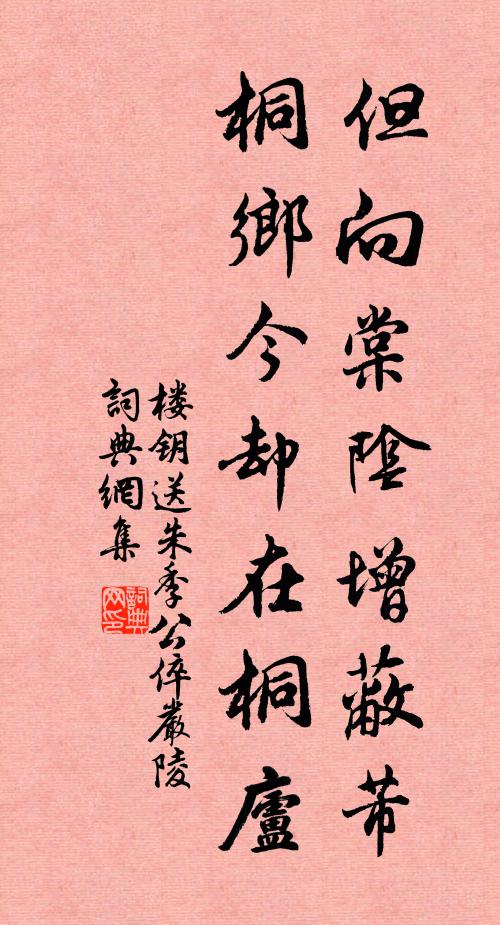 但向棠陰增蔽芾
桐鄉今却在桐廬
楼钥送朱季公倅嚴陵
詞典網集
詞典網印